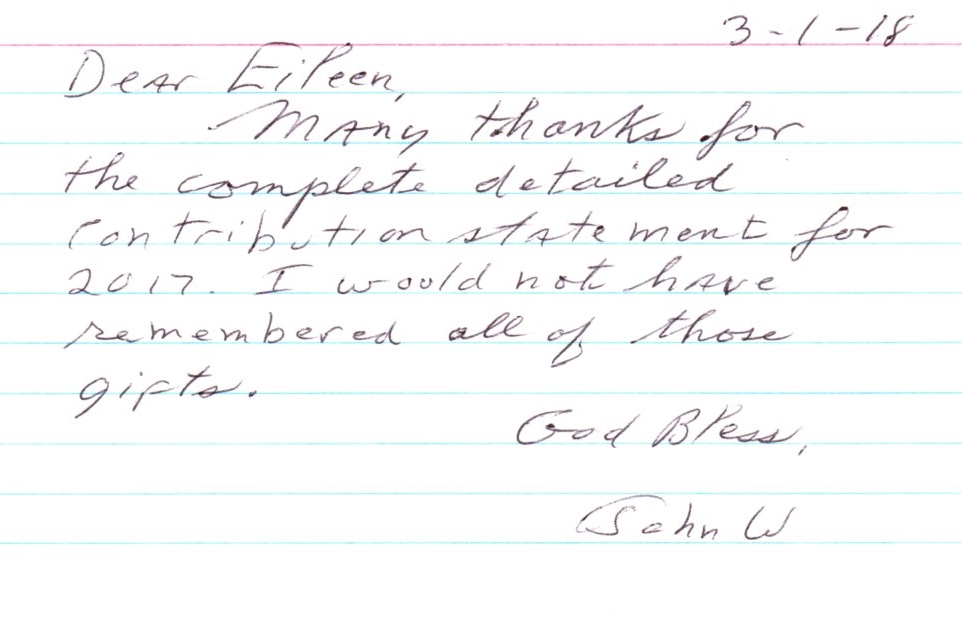 3-1-18
Dear Eileen,
Many thanks for
the complete detailed
contribution statement for
2017. I would not have
remembered all of those
gifts.
God Bless,
John W